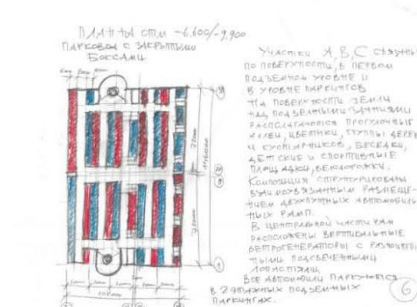 ПЛАН НА ОТМ -6.600/-9.900
ПАРКОВКА С ЗАКРЫТЫМИ
БОКСАМИ
УЧАСТКИ А, В, С СВЯЗАНЫ
ПО ПОВЕРХНОСТИ, В ПЕРВОМ
ПОДЗЕМНОМ УРОВНЕ И
В УРОВНЕ ПАРКИНГОВ
НА ПОВЕРХНОСТИ ЗЕМЛИ
НАД ПОДЗЕМНЫМИ
РАСПОЛАГАЮТСЯ ПРОГУЛОЧНЫЕ
АЛЛЕИ, ЦВЕТНИКИ, ГРУППЫ ДЕРЕВЬЕВ
И КУСТАРНИКОВ, БЕСЕДКИ,
ДЕТСКИЕ И СПОРТИВНЫЕ
ПЛОЩАДКИ, ВЕЛОДОРОЖКИ.
КОМПОЗИЦИЯ СТРУКТУРИРОВАНА
ВЗАИМОУВЯЗАННЫМ РАЗМЕЩЕ-
НИЕМ ДВУХПУТНЫХ АВТОМОБИЛЬ-
НЫХ РАМП.
В ЦЕНТРАЛЬНОЙ ЧАСТИ РАМП
РАСПОЛОЖЕНЫ ВЕРТИКАЛЬНЫЕ
ВЕТРОГЕНЕРАТОРЫ С
ПОДСВЕЧЕННЫМИ
ЛОПАСТЯМИ.
ВСЕ АВТОМОБИЛИ ПАРКУЮТСЯ
В 2 ЭТАЖНЫХ ПОДЗЕМНЫХ
ПАРКИНГАХ.
6